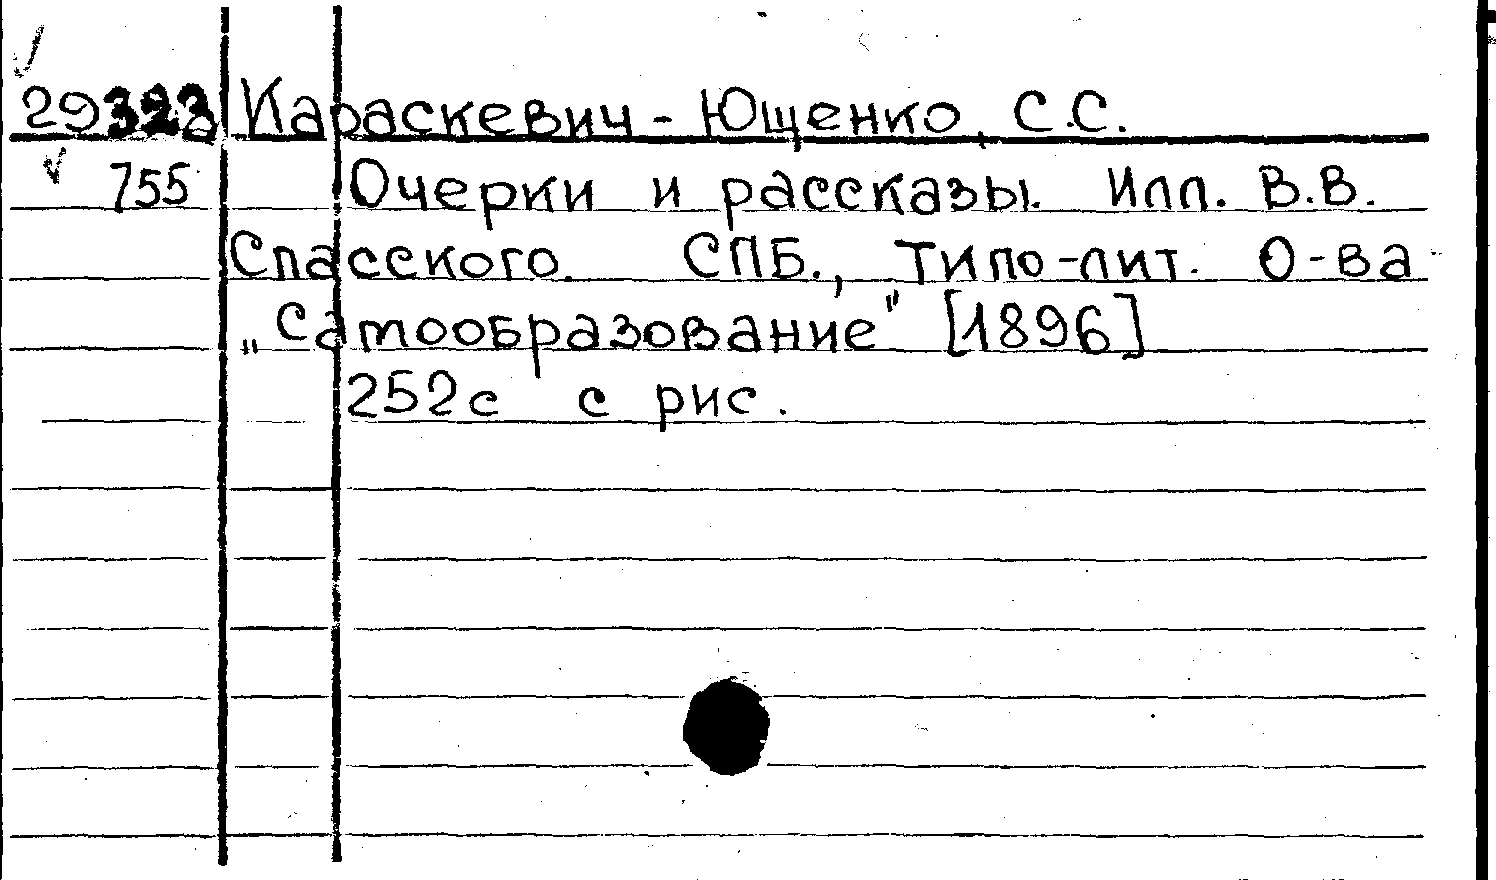 29323 Караскевич - Ющенко, С.С.
755 Очерки и рассказы. Илл. В.В.
Спасского. СПБ., Типо-лит. О-ва
„Самообразование" [1896]
252с с рис.